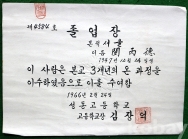 제4384호
졸업장
본적 서울
이름 閔丙德
1947년 12월 14일생
이 사람은 본교 3개년의 온 과정을
이수하였음으로 이를 수여함
1966년 2월 24일
성동고등학교
고등학교장 김장덕